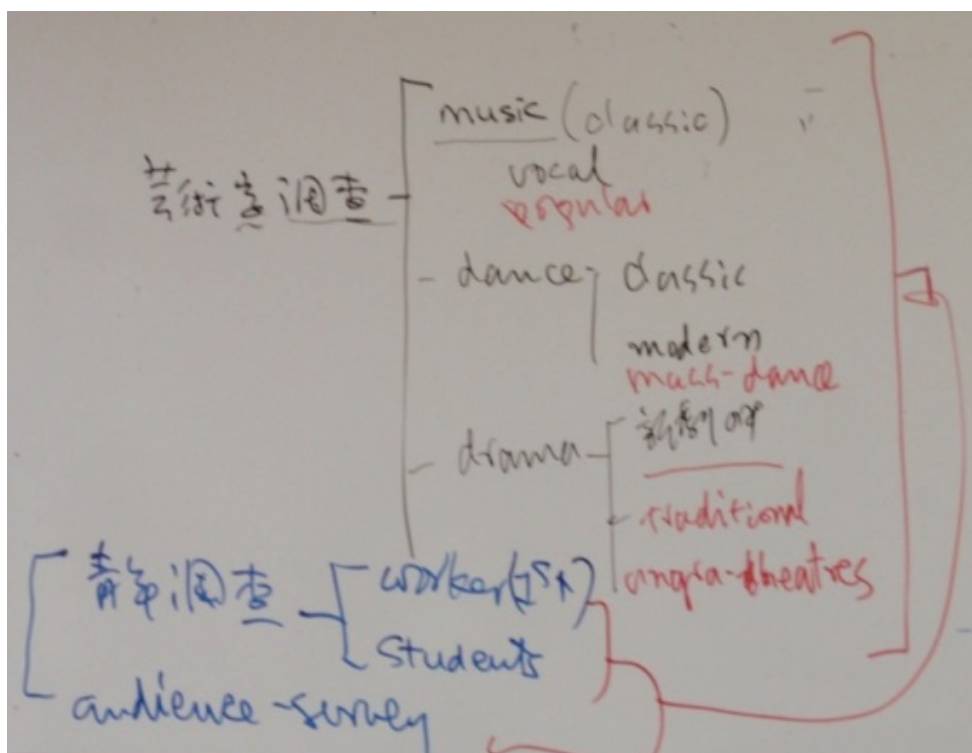 music (classic)
vocal
芸術意调查
popular
dance classic
modern
mass-dance
drama
traditional
angra-theatres
青年调查 worker
students
audience-survey